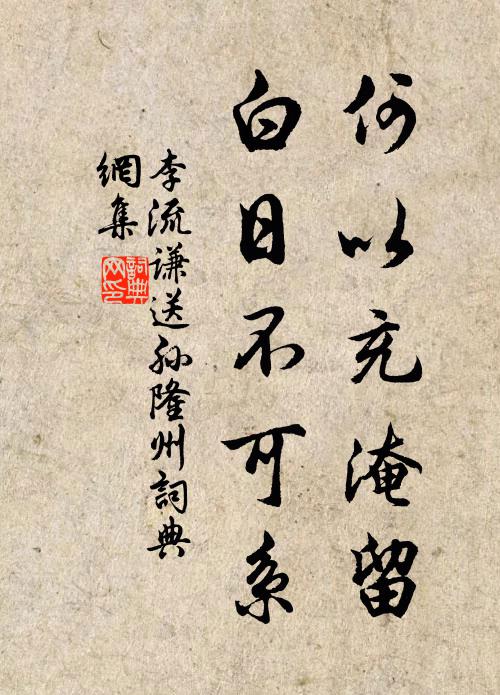 何以充淹留
白日不可系
李流謙送孫隆州詞典
網集
詞典
网印